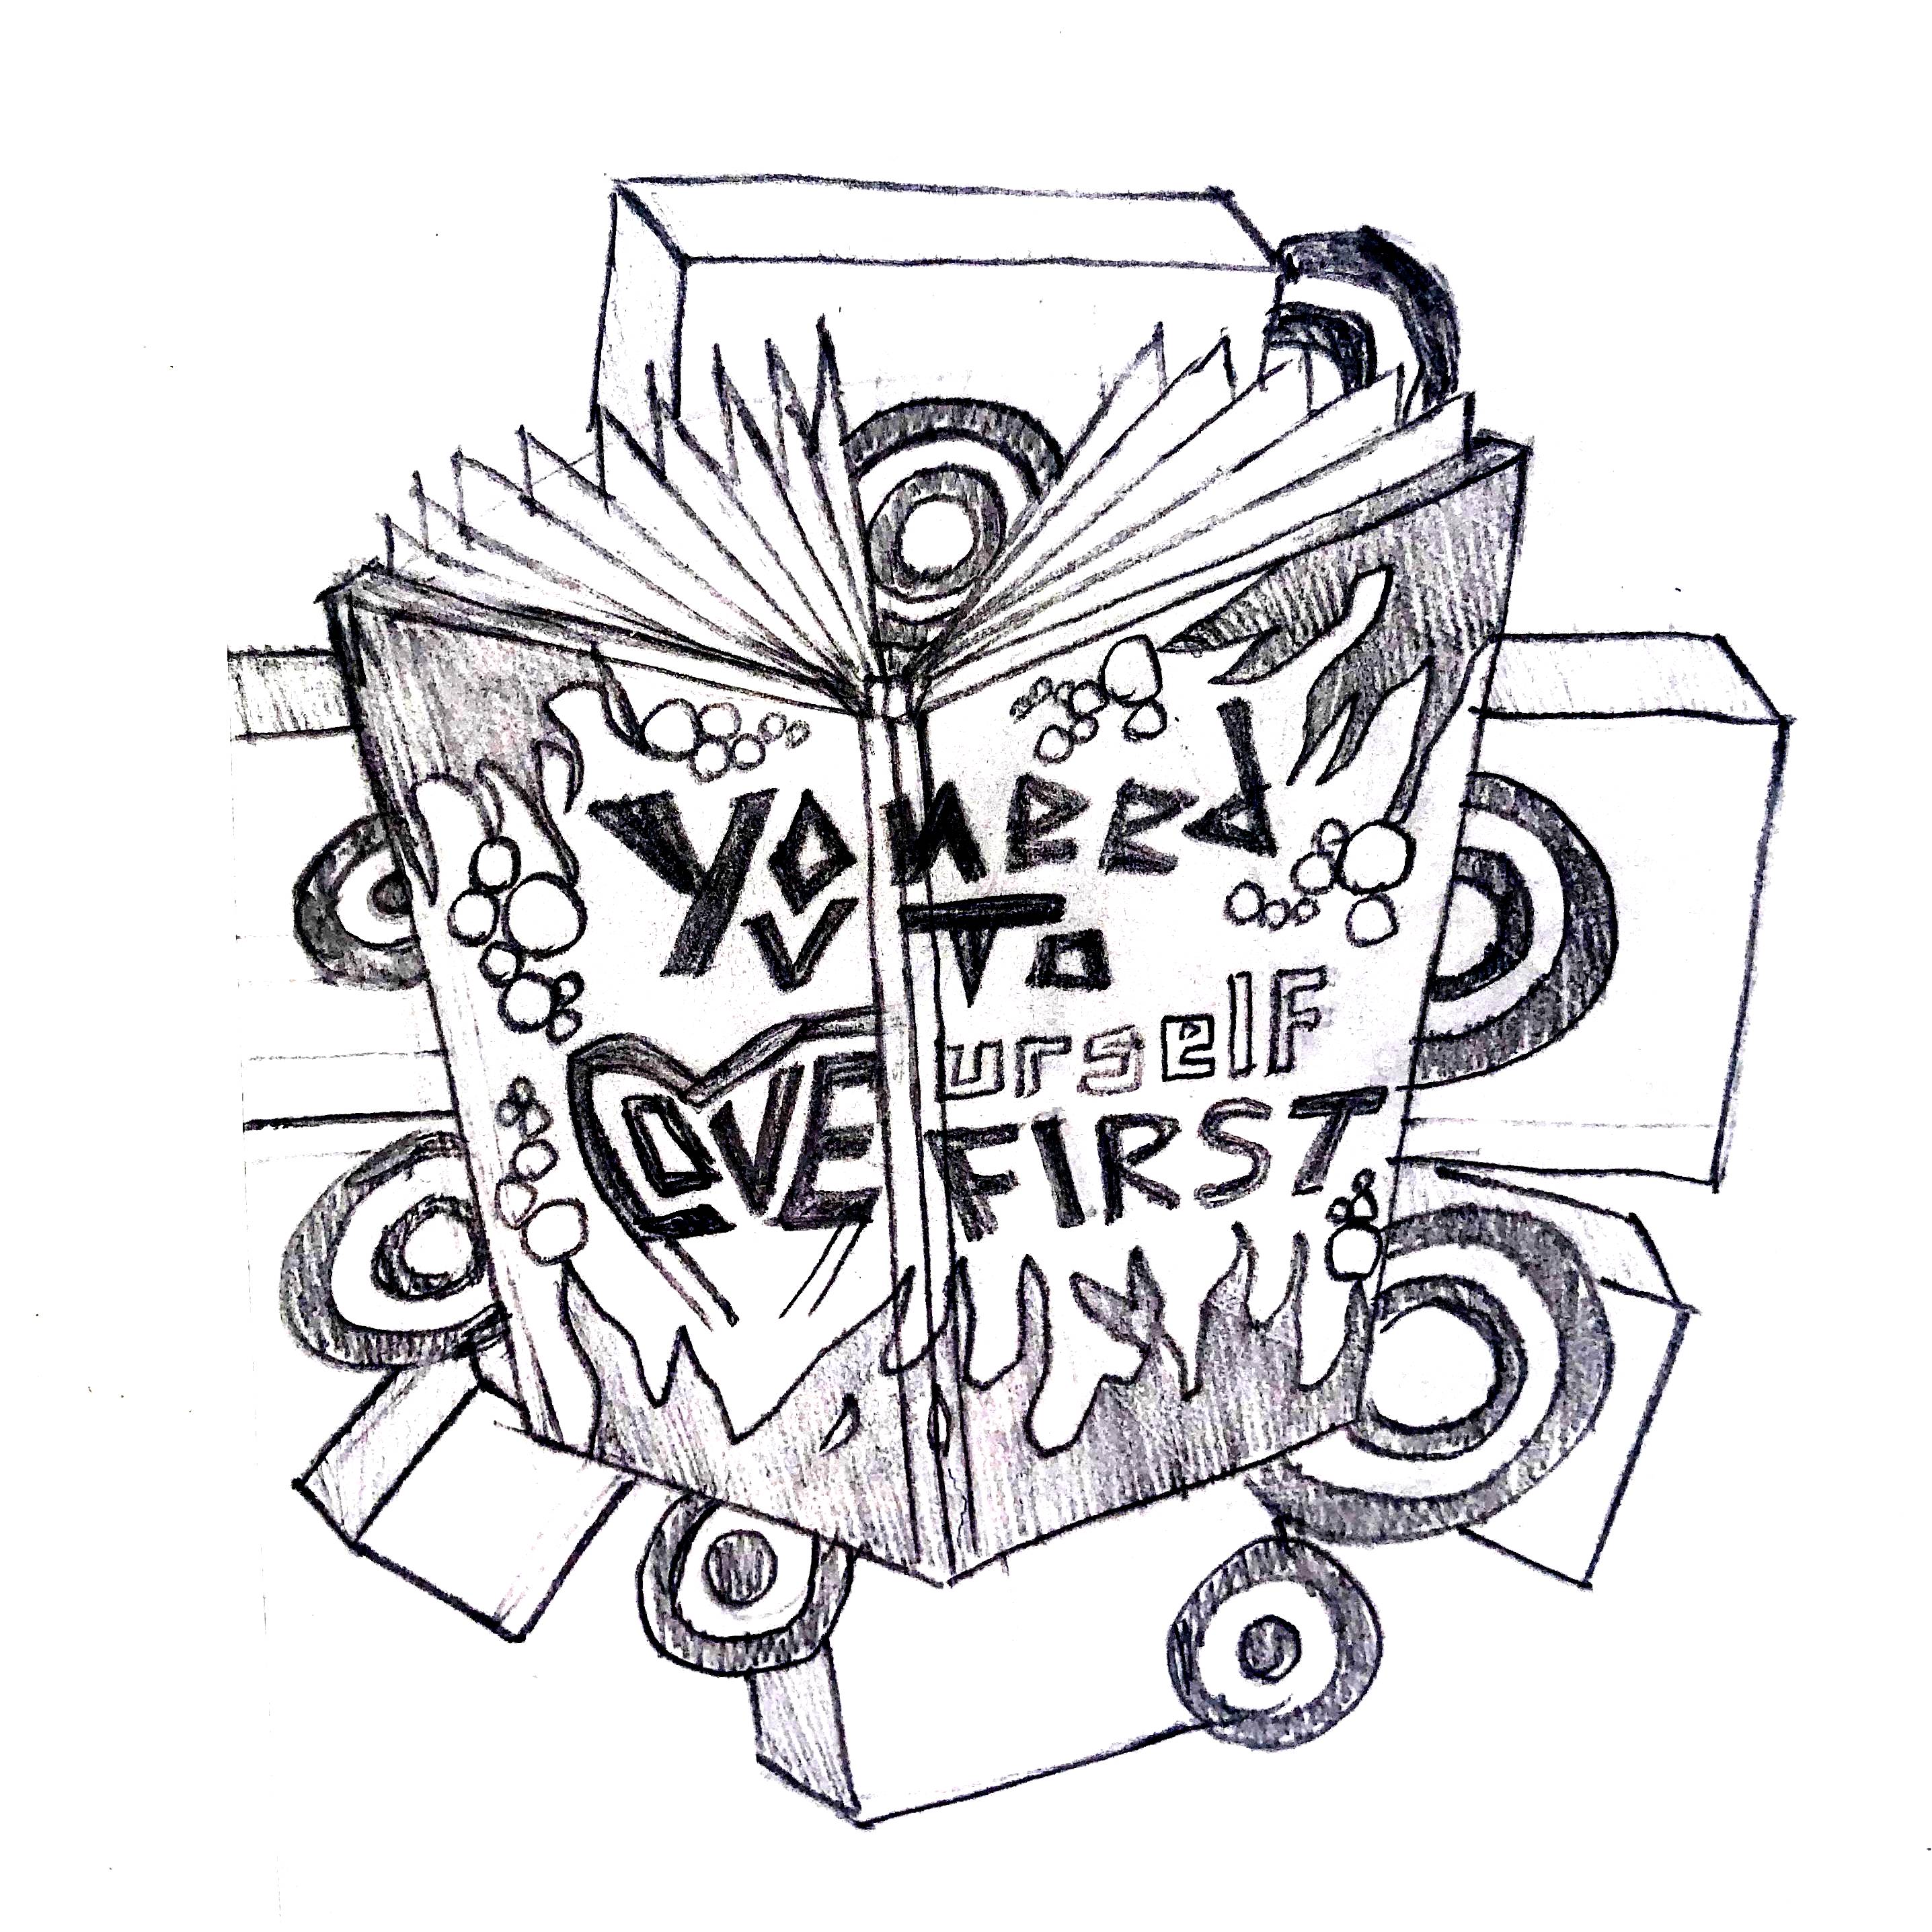 You need
To
LOVE urself
FIRST